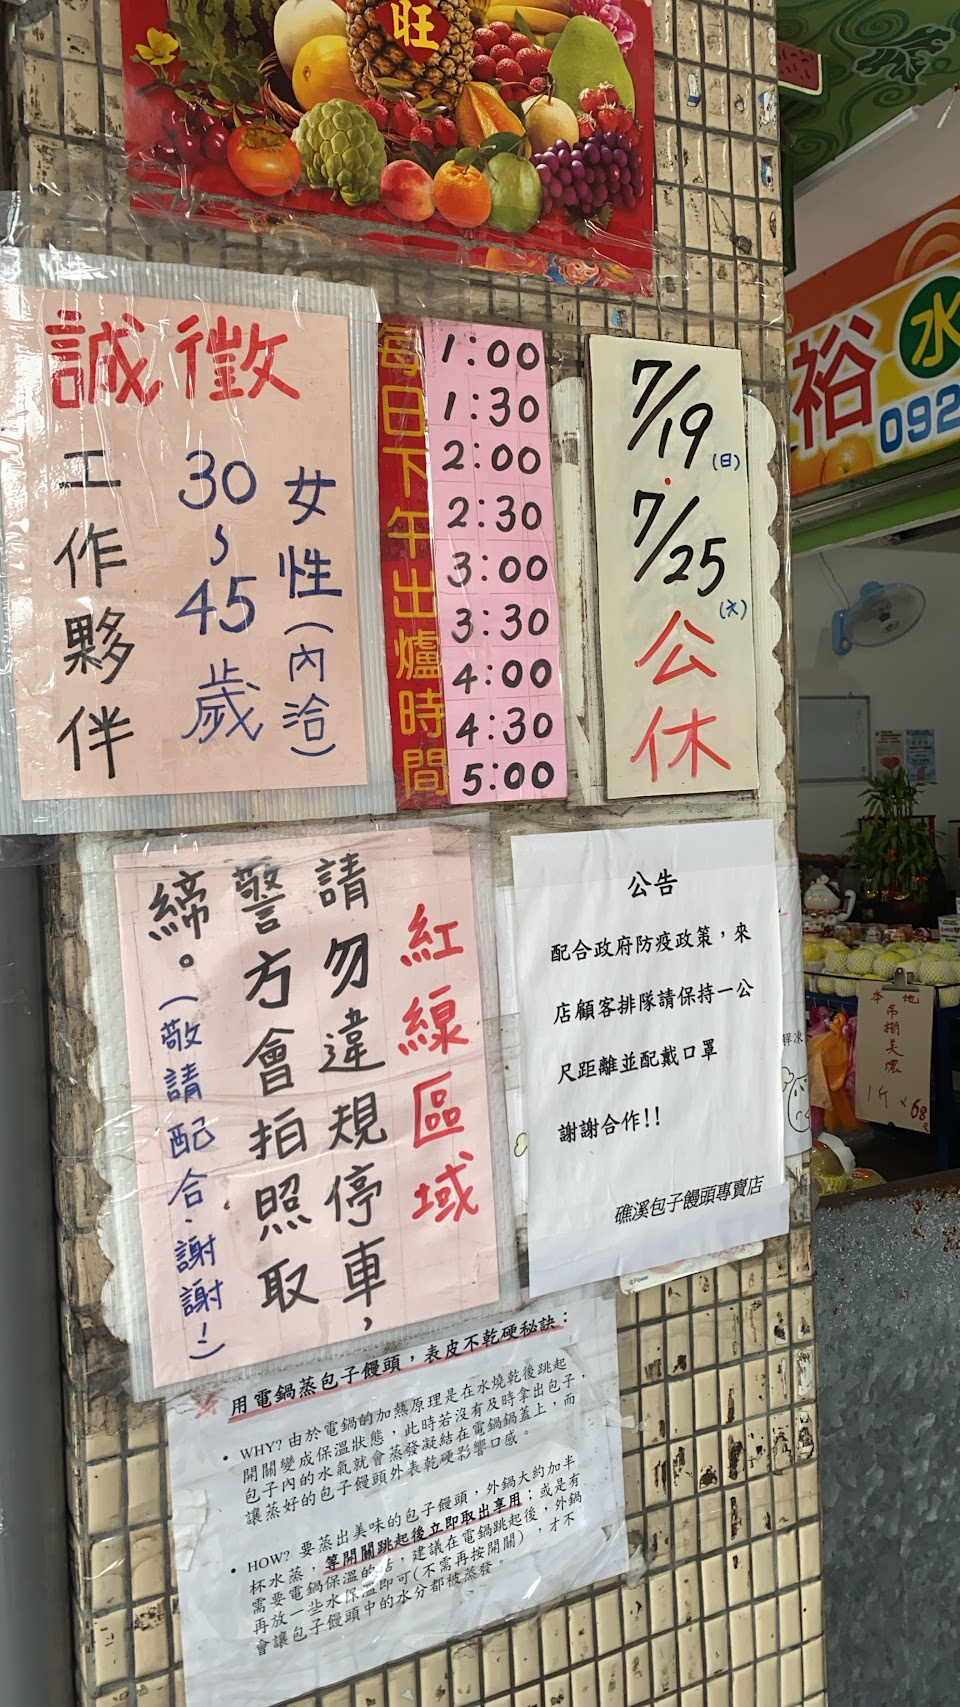 旺
誠徵
工作夥伴
30~45歲
女性(內洽)
每日下午出爐時間
1:00
1:30
2:00
2:30
3:00
3:30
4:00
4:30
5:00
7/19(日)
7/25(六)
公休
裕
水
092
紅線區域
請勿違規停車,
警方會拍照取
締。(敬請配合.謝謝!)
公告
配合政府防疫政策,來
店顧客排隊請保持一公
尺距離並配戴口罩
謝謝合作!!
礁溪包子饅頭專賣店
©Flower
本地
1斤×68元
用電鍋蒸包子饅頭,表皮不乾硬秘訣:
• WHY? 由於電鍋的加熱原理是在水燒乾後跳起
開關變成保溫狀態,此時若沒有及時拿出包子,
包子內的水氣就會蒸發凝結在電鍋鍋蓋上,而
讓蒸好的包子饅頭外表乾硬影響口感。
• HOW? 要蒸出美味的包子饅頭,外鍋大約加半
杯水蒸,等開關跳起後立即取出享用;或是有
需要電鍋保溫的話,建議在電鍋跳起後,外鍋
再放一些水保溫即可(不需再按開關),才不
會讓包子饅頭中的水分都被蒸發。